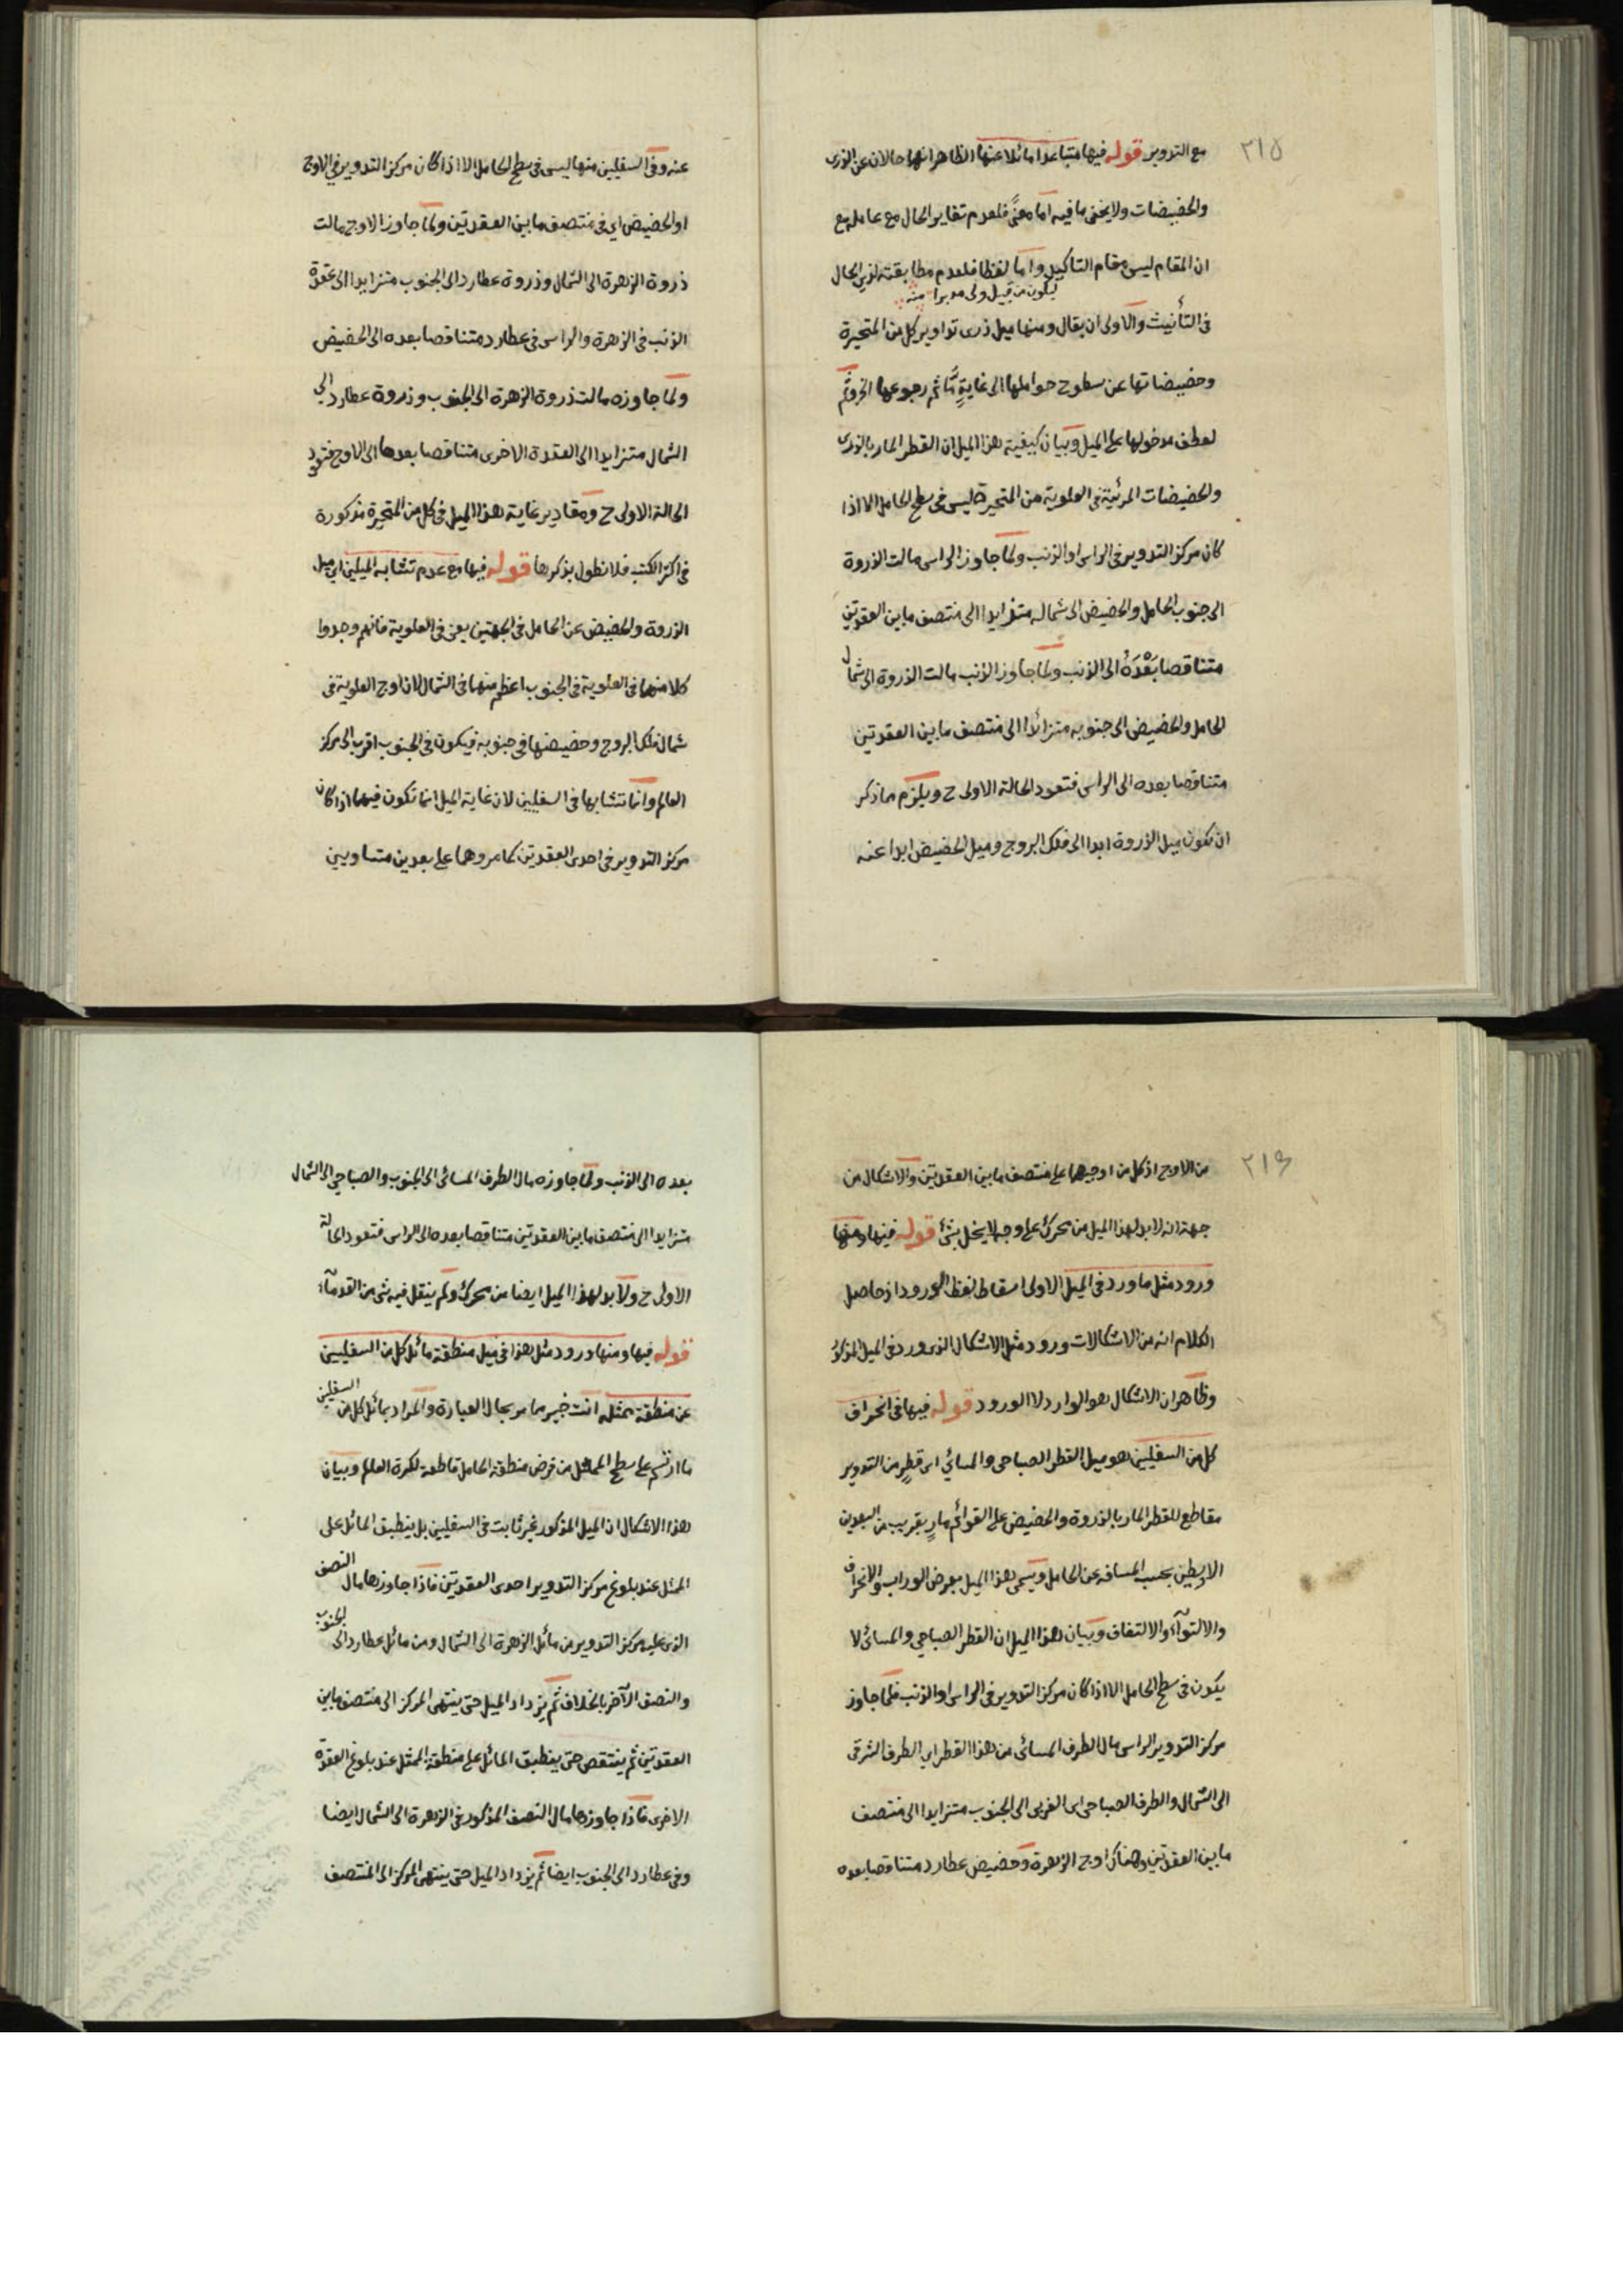 ٢١٥
مع التدوير قوله فيها متباعدا مائلا عنها الظاهر انهما حالان عن الذرى
والحضيضات ولا يخفى ما فيه اما معنًى فلعدم تغاير الحال مع عامله مع
ان المقام ليس مقام التاكيد واما لفظا فلعدم مطابقته لذي الحال
ليكون من قبيل ولى مدبرا منه
فى التأنيث والاولى ان يقال ومنها ميل ذرى تداوير كل من المتحيرة
وحضيضاتها عن سطوح حواملها الى غايةٍ مّا ثم رجوعها
لعطف مدخولها على الميل وبيان كيفية هذا الميل ان القطر المار بالذرى
والحضيضات المرئية فى العلوية من المتحيرة ليس فى سطح الحامل الا اذا
كان مركز التدوير فى الراس او الذنب ولما جاوز الراس مالت الذروة
الى جنوب الحامل والحضيض الى شماله متزايدا الى منتصف ما بين العقدتين
متناقصا بَعْدَهُ الى الذنب ولما جاوز الذنب مالت الذروة الى شمال
الحامل والحضيض الى جنوبه متزائدا الى منتصف ما بين العقدتين
متناقصا بعده الى الراس فتعود الحالة الاولى ح ويلزم مما ذكر
ان تكون ميل الذروة ابدا الى فلك البروج وميل الحضيض ابدا عنه
عنه وفى السفليين منها ليس فى سطح الحامل الا اذا كان مركز التدوير فى الاوج
او الحضيض اى فى منتصف ما بين العقدتين ولما جاوز الاوج مالت
ذروة الزهرة الى الشمال وذروة عطارد الى الجنوب متزايدا الى عقدة
الذنب فى الزهرة والراس فى عطارد متناقصا بعده الى الحضيض
ولما جاوزه مالت ذروة الزهرة الى الجنوب وذروة عطارد الى
الشمال متزايدا الى العقدة الاخرى متناقصا بعدها الى الاوج فتعود
الحالة الاولى ح ومقادير غاية هذا الميل فى كل من المتحيرة مذكورة
فى اكثر الكتب فلا نطول بذكرها قوله فيها مع عدم تشابه الميلين اى ميل
الذروة والحضيض عن الحامل فى الجهتين يعنى فى العلوية فانهم وجدوا
كلا منهما فى العلوية فى الجنوب اعظم منهما فى الشمال لان اوج العلوية فى
شمال فلك البروج وحضيضها فى جنوبه فيكون فى الجنوب اقرب الى مركز
العالم وانما تشابها فى السفليين لان غاية الميل انما تكون فيهما اذا كان
مركز التدوير فى احدى العقدتين كما مر وهما على بعدين متساويين
٢١٦
من الاوج اذ كل من اوجيهما على منتصف ما بين العقدتين والاشكال من
جهة انه لا بد لهذا الميل من محرك على وجه لا يخل بشئ قوله فيها ومنها
ورود مثل ما ورد فى الميل الاولى اسقاط لفظ الورود اذ حاصل
الكلام انه من الاشكالات ورود مثل الاشكال الذى ورد فى الميل المذكور
وظاهر ان الاشكال هو الوارد لا الورود قوله فيها فى انحراف
كل من السفليين هو ميل القطر الصباحى والمسائي اى قطرٍ من التدوير
مقاطع للقطر المار بالذروة والحضيض على القوائم مارٍ بقريب من البعدين
الاوسطين بحسب المسافة عن الحامل ويسمى هذا الميل بعرض الوراب والانحراف
والالتوآء والالتفاف وبيان هذا الميل ان القطر الصباحي والمسائى لا
يكون فى سطح الحامل الا اذا كان مركز التدوير فى الراس او الذنب فلما جاوز
مركز التدوير الراس مال الطرف المسائى من هذا القطر اى الطرف الشرقى
الى الشمال والطرف الصباحى اى الغربى الى الجنوب متزايدا الى منتصف
ما بين العقدتين وهناك اوج الزهرة وحضيض عطارد متناقصا بعده
بعده الى الذنب ولما جاوزه مال الطرف المسائى الى الجنوب والصباحي الى الشمال
متزايدا الى منتصف ما بين العقدتين متناقصا بعده الى الراس فتعود الحالة
الاولى ح ولا بد لهذا الميل ايضا من محرك ولم ينقل فيه شئ من القدمآء
قوله فيها ومنها ورود مثل هذا فى ميل منطقة مائل كل من السفليين
عن منطقة ممثله انت خبير مما مر بحال العبارة والمراد بمائل كل من السفليين
ما ارتسم على سطح الممثل من فرض منطقة الحامل قاطعة لكرة العالم وبيان
هذا الاشكال ان الميل المذكور غير ثابت فى السفليين بل ينطبق المائل على
الممثل عند بلوغ مركز التدوير احدى العقدتين فاذا جاوزها مال النصف
الذى عليه مركز التدوير من مائل الزهرة الى الشمال ومن مائل عطارد الى الجنوب
والنصف الآخر بالخلاف ثم يزداد الميل حتى ينتهى المركز الى منتصف ما بين
العقدتين ثم ينتقص حتى ينطبق المائل على منطقة الممثل عند بلوغ العقدة
الاخرى فاذا جاوزها مال النصف المذكور فى الزهرة الى الشمال ايضا
وفى عطارد الى الجنوب ايضا ثم يزداد الميل حتى ينتهى المركز الى المنتصف